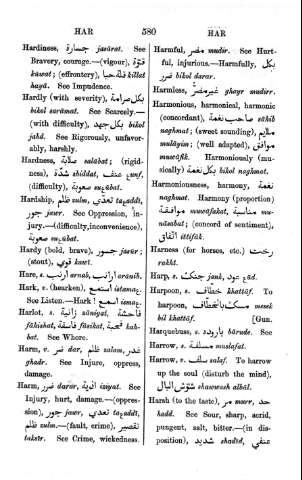 HAR 580 HAR
Hardiness, جسارة jasārat. See
Bravery, courage.—(vigour), قوة
kūwat; (effrontery), قلة حيا killat
hayā. See Impudence.
Hardly (with severity), بكل صرامة
bikol sarāmat. See Scarcely.—
(with difficulty), بكل جهد bikol
jahd. See Rigorously, unfavor-
ably, harshly.
Hardness, صلابة salabat; (rigid-
ness), شدة shiddat, عنف
(difficulty), صعوبة
Hardship, ظلم zulm, تعدي
جور jaur. See Oppression, in-
jury.—(difficulty, inconvenience),
صعوبة
Hardy (bold, brave), جسور jasūr;
(stout), قوي kawī.
Hare, s. ارنب arnab, ارانب arānib.
Hark, v. (hearken), استمع
See Listen.—Hark! اسمع
Harlot, s. زانية zāniyat, فاحشة
fāhishat, فاسقة fāsikat, قحبة kah-
bat. See Whore.
Harm, v. ضر dar, ظلم zalam, غدر
ghadr. See Injure, oppress,
damage.
Harm, ضرر darar, اذية izīyat. See
Injury, hurt, damage.—(oppres-
sion), جور jawr, تعدي
ظلم zulm.—(fault, crime), تقصير
taksīr. See Crime, wickedness.
Harmful, مضر mudirr. See Hurt-
ful, injurious.—Harmfully, بكل
ضرر bikol darar.
Harmless, غير مضر ghayr mudirr.
Harmonious, harmonical, harmonic
(concordant), صاحب نغمة sāhib
naghmat; (sweet sounding), ملايم
mulāyim; (well adapted), موافق
muwāfik. Harmoniously (mu-
sically) بكل نغمة bikol naghmat.
Harmoniousness, harmony, نغمة
naghmat. Harmony (proportion)
موافقة muwafakat, مناسبة mu-
nāsabat; (concord of sentiment),
اتفاق ittifāk.
Harness (for horses, etc.) رخت
rakht.
Harp, s. جنك jank, عود
Harpoon, s. خطاف khattāf. To
harpoon, مسك بالخطاف mesek
bil khattāf. [Gun.
Harquebuss, s. بارودة bārude. See
Harrow, s. مسلفة muslafat.
Harrow, v. سلف salaf. To harrow
up the soul (disturb the mind),
شوش البال shawwesh albāl.
Harsh (to the taste), مر murr, حد
hadd. See Sour, sharp, acrid,
pungent, salt, bitter.—(in dis-
position), شديد shadīd, عنفي